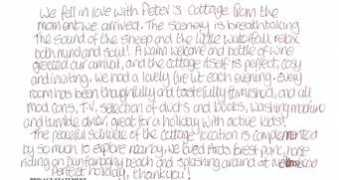 We fell in love with Peter's cottage from the
moment we arrived. The scenery is breathtaking.
The sound of the sheep and the little waterfall relax
both mind and soul! A warm welcome and bottle of wine
greeted our arrival, and the cottage itself is perfect, cosy
and inviting. We had a lovely fire lit each evening. Every
room has been thoughtfully and tastefully furnished, and all
mod cons, T.V, selection of dvd's and books, washing machine
and tumble drier, great for a holiday with active kids!
The peaceful solitude of the cottage location is complemented
by so much to explore nearby. We loved forest park, horse
riding on beach and splashing around at
Perfect holiday, thank you!